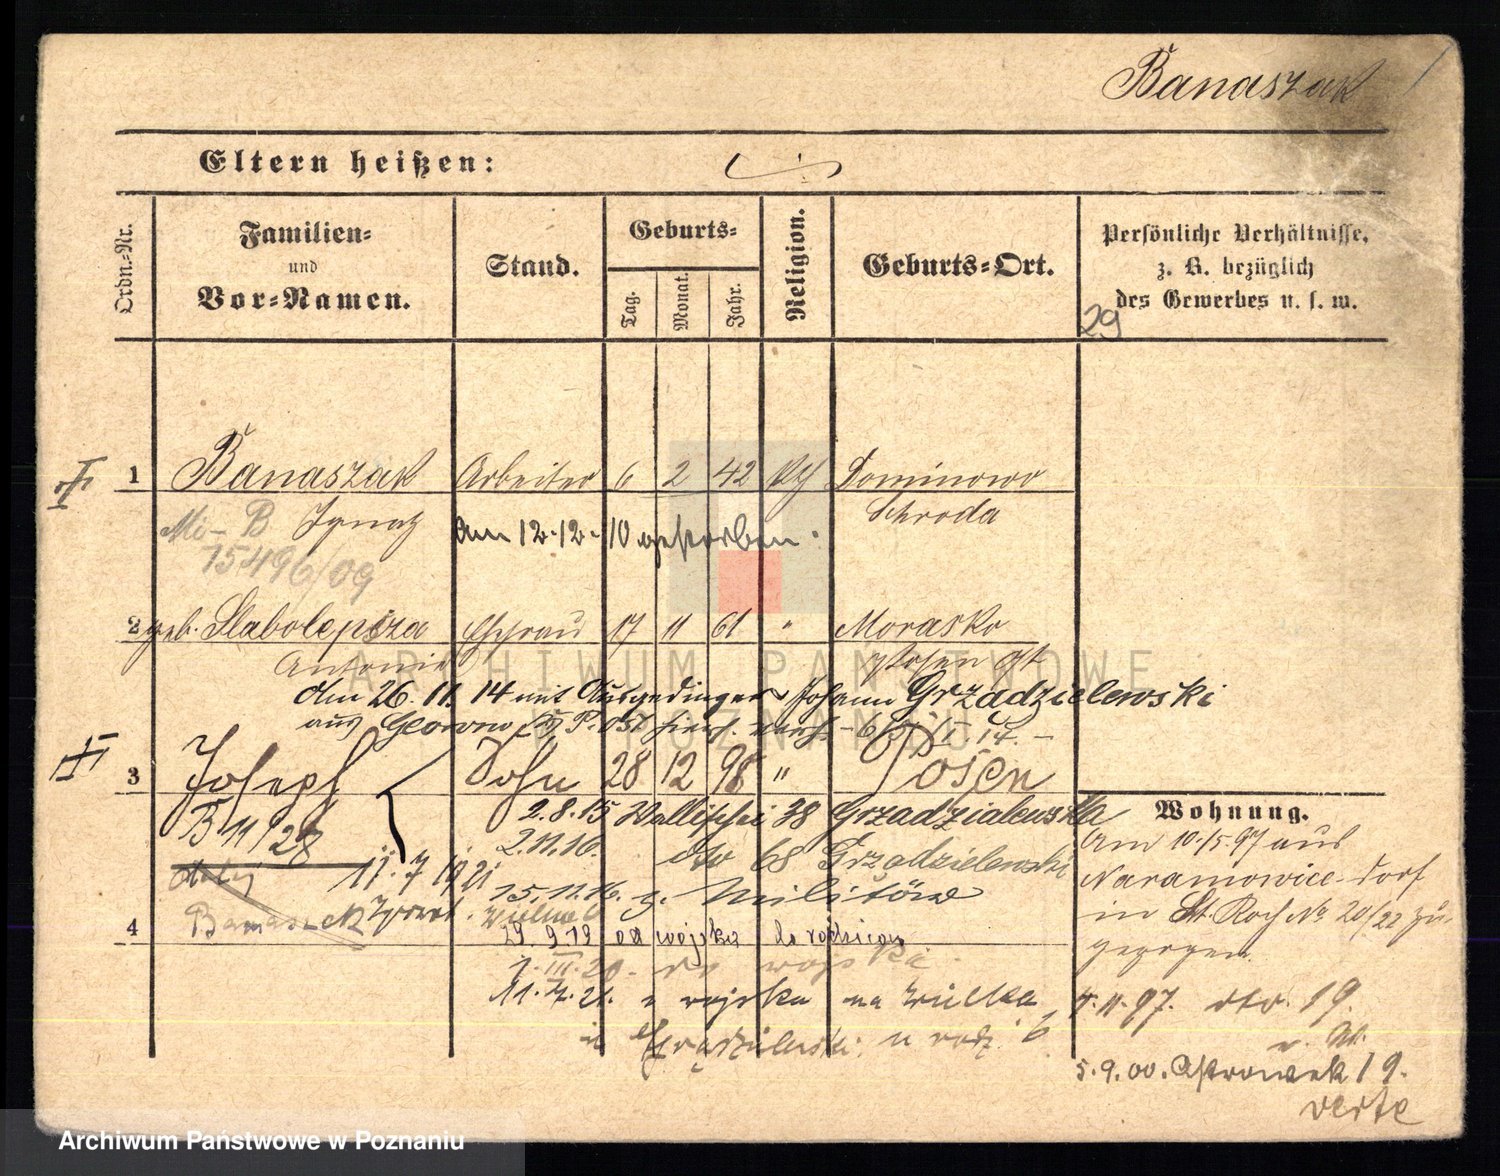 Banaszak
Eltern heißen:
Ordn.-Nr.
Familien-
und
Vor-Namen.
Stand.
Geburts-
Tag.
Monat.
Jahr.
Religion.
Geburts-Ort.
Persönliche Verhältnisse,
z. B. bezüglich
des Gewerbes u. s. w.
29
1 Banaszak Arbeiter 6 2 42 Dominowo
Ignatz Schroda
Mi- B
15496/09
am 12.12. 10 gestorben.
2 geb. Slabolepsza Ehefrau 17 11 61 " Morasko
Antonie Posen
am 26. 11. 14 mit Ausgedinger Johann Grzadzielewski
aus
3 Joseph Sohn 28 12 98 " Posen
B 11/28
2.8.15 Wallischei 38 Grzadzialewska
2.11.16. dto 68 Grzadzielewski
11.7 1921
15.11.16. z. Militär
4 Banaszek Ignat.
29. 9 19 od wojska do rodziców
1.III.20. do wojska
11.7.21. z wojska na Wilka
u rodz. 6
Wohnung.
Am 10.5.97 aus
Naramowice Dorf
in St. Roch No 20/22 zu-
gezogen.
4.11.97. dto. 19.
5.9.00. Ostrowek 19.
verte
ARCHIWUM PAŃSTWOWE
W POZNANIU
Archiwum Państwowe w Poznaniu